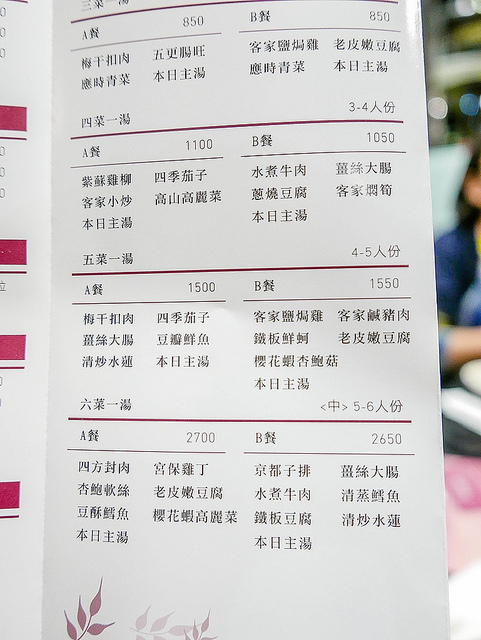 三菜一湯
A餐 850 B餐 850
梅干扣肉 五更腸旺 客家鹽焗雞 老皮嫩豆腐
應時青菜 本日主湯 應時青菜 本日主湯
四菜一湯 3-4人份
A餐 1100 B餐 1050
紫蘇雞柳 四季茄子 水煮牛肉 薑絲大腸
客家小炒 高山高麗菜 蔥燒豆腐 客家燜筍
本日主湯 本日主湯
五菜一湯 4-5人份
A餐 1500 B餐 1550
梅干扣肉 四季茄子 客家鹽焗雞 客家鹹豬肉
薑絲大腸 豆瓣鮮魚 鐵板鮮蚵 老皮嫩豆腐
清炒水蓮 本日主湯 櫻花蝦杏鮑菇
本日主湯
六菜一湯 <中> 5-6人份
A餐 2700 B餐 2650
四方封肉 宮保雞丁 京都子排 薑絲大腸
杏鮑軟絲 老皮嫩豆腐 水煮牛肉 清蒸鱈魚
豆酥鱈魚 櫻花蝦高麗菜 鐵板豆腐 清炒水蓮
本日主湯 本日主湯